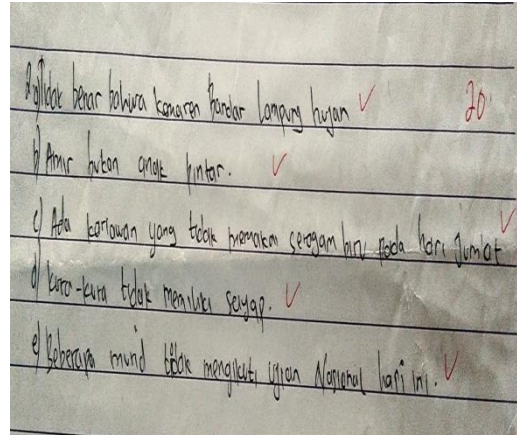 2. a) Tidak benar bahwa kemaren Bandar Lampung hujan ✓ 20
b) Amir bukan anak pintar. ✓
c) Ada kariawan yang tidak memakai seragam biru pada hari Jumat ✓
d) kura-kura tidak memiliki sayap. ✓
e) Beberapa murid tidak mengikuti ujian Nasional hari ini. ✓